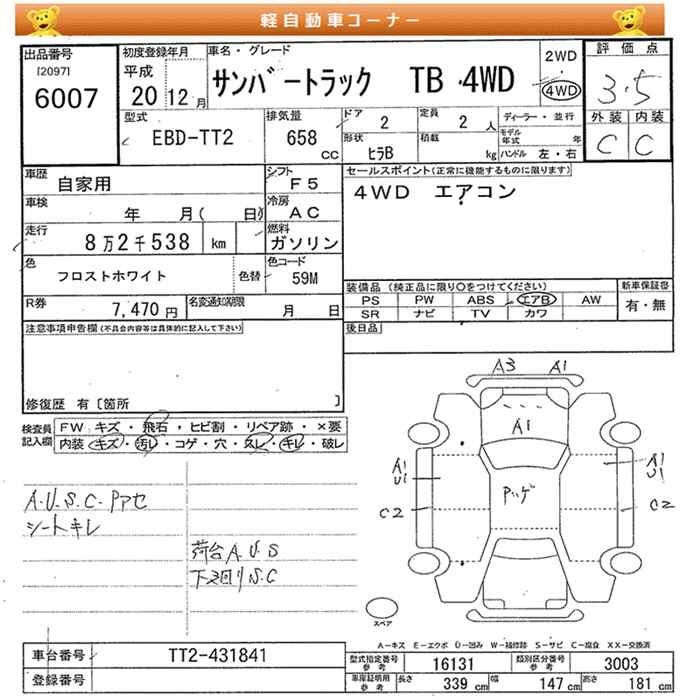 軽自動車コーナー
出品番号
[2097]
6007
初度登録年月
平成
20 12 月
車名・グレード
サンバートラック TB 4WD
2WD
4WD
評価点
3.5
外装 内装
C C
型式
EBD-TT2
排気量
658 cc
ドア
2
形状
ヒラB
定員
2 人
積載
kg
ディーラー・並行
モデル年式 年
ハンドル 左・右
車歴
自家用
シフト
F5
車検
年 月( 日)
冷房
AC
走行
8万2千538 km
燃料
ガソリン
色
フロストホワイト
色替
色コード
59M
R券
7,470 円
名変通知期限
月 日
セールスポイント(正常に機能するものに限ります)
4WD エアコン
装備品(純正品に限り○をつけてください)
PS PW ABS エアB AW
SR ナビ TV カワ
新車保証書
有・無
後日品
注意事項申告欄(不具合内容等は具体的に記入して下さい)
修復歴 有〔箇所 〕
検査員記入欄
FW キズ・飛石・ヒビ割・リペア跡・×要
内装 キズ・汚レ・コゲ・穴・スレ・キレ・破レ
A.U.S.C.Pアセ
シートキレ
荷台A.U.S
下廻りS.C
A3 A1
A1
A1
U1
C2
A1
U1
C2
スペア
A-キズ E-エクボ U-凹み W-補修跡 S-サビ C-腐食 XX-交換済
車台番号
TT2-431841
登録番号
型式指定番号
参考
16131
類別区分番号
参考
3003
車庫証明用
参考
長さ 339 cm
幅 147 cm
高さ 181 cm